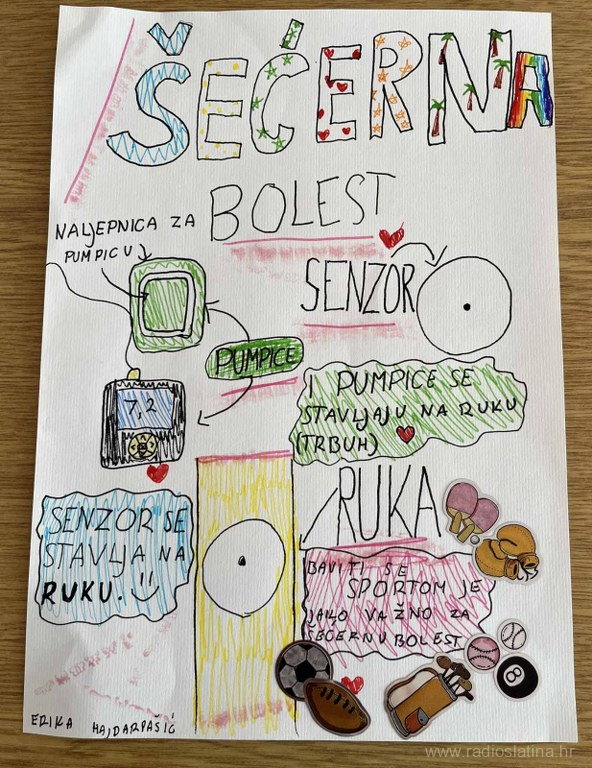 ŠEĆERNA
BOLEST
NALJEPNICA ZA
PUMPICU
SENZOR
PUMPICE
7,2
I PUMPICE SE
STAVLJAJU NA RUKU
(TRBUH)
RUKA
SENZOR SE
STAVLJA NA
RUKU.
BAVITI SE
SPORTOM JE
JAKO VAŽNO ZA
ŠEĆERNU BOLEST
8
ERIKA HAJDARPAŠIĆ
www.radioslatina.hr